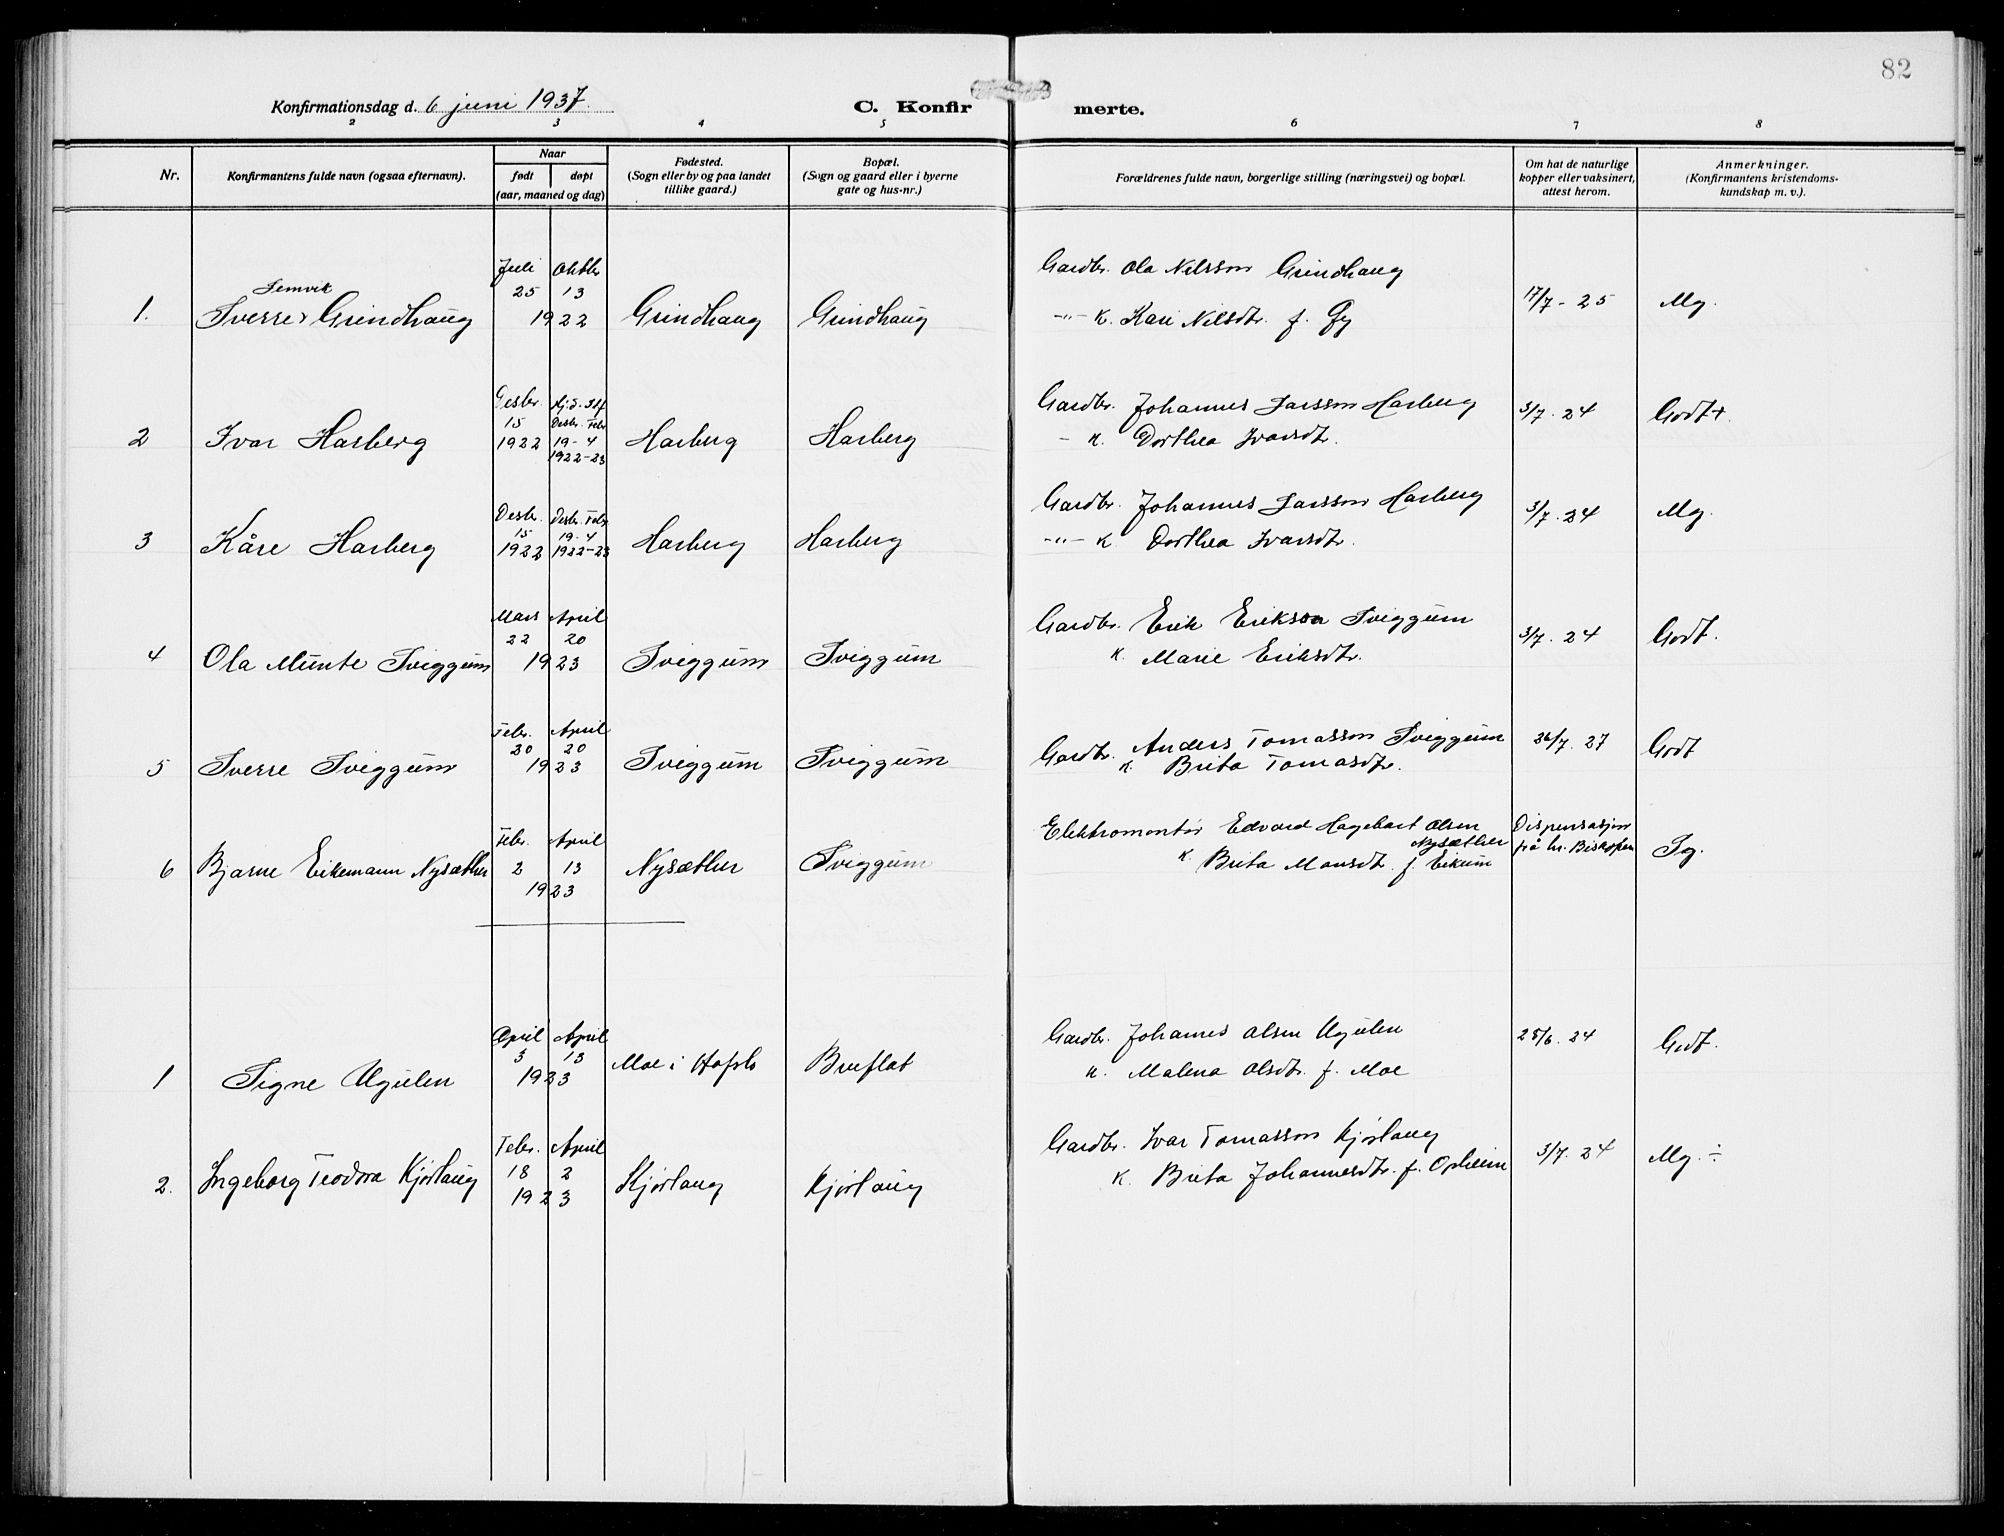 82
Konfirmationsdag d. 6 juni 1937.
C. Konfirmerte.
2 3 4 5 6 7 8
Nr.
Konfirmantens fulde navn (ogsaa efternavn).
Naar
født døpt
(aar, maaned og dag)
Fødested.
(Sogn eller by og paa landet
tillike gaard.)
Bopæl.
(Sogn og gaard eller i byerne
gate og hus-nr.)
Forældrenes fulde navn, borgerlige stilling (næringsvei) og bopæl.
Om hat de naturlige
kopper eller vaksinert,
attest herom.
Anmerkninger.
(Konfirmantens kristendoms-
kundskap m. v.).
Juli Oktbr
25 13
1922
Semvik
1. Sverre Grindhaug Grindhaug Grindhaug
Gardbr. Ola Nilsson Grindhaug
-"- K. Kari Nilsdtr. f. Gy
17/7 - 25 Mg.
Desbr.
15 Desbr. Febr
1922 19 - 4
1922-23
2 Ivar Harberg Harberg Harberg
Gardbr. Johannes Larsson Harberg
- K. Dorthea Ivarsdtr.
3/7. 24 Godt+
Desbr. Desbr. Febr
15 19-4
1922 1922-23
3 Kåre Harberg Harberg Harberg
Gardbr. Johannes Larsson Harberg
-"- K Dorthea Ivarsdtr.
3/7. 24 Mg.
Mars April
22 20
1923
4 Ola Munte Sviggum Sviggum Sviggum
Gardbr. Erik Erikson Sviggum
K. Marie Eriksdtr.
3/7. 24 Godt.
Febr. April
20 20
1923
5 Sverre Sviggum Sviggum Sviggum
Gardbr. Anders Tomasson Sviggum
K. Brita Tomasdtr.
26/7. 27 Godt
Febr. April
2 13
1923
6 Bjarne Eikemann Nysæther Nysæther Sviggum
Elektromontør Edvard Hagebart Olsen
Nysæther
K. Brita Monsdtr. f. Eikum
Dispensasjon
frå hr. Biskopen
Sg.
April April
3 13
1923
1 Signe Ugulen Moe i Hafslo Bruflat
Gardbr. Johannes Olsen Ugulen
K. Malena Olsdtr. f. Moe
28/6. 24 Godt.
Febr. April
18 2
1923
2. Ingeborg Teodora Kjørlaug Kjørlaug Kjørlaug
Gardbr. Ivar Tomasson Kjørlaug
K. Brita Johannesdtr. f. Opheim
3/7. 24 Mg. ÷